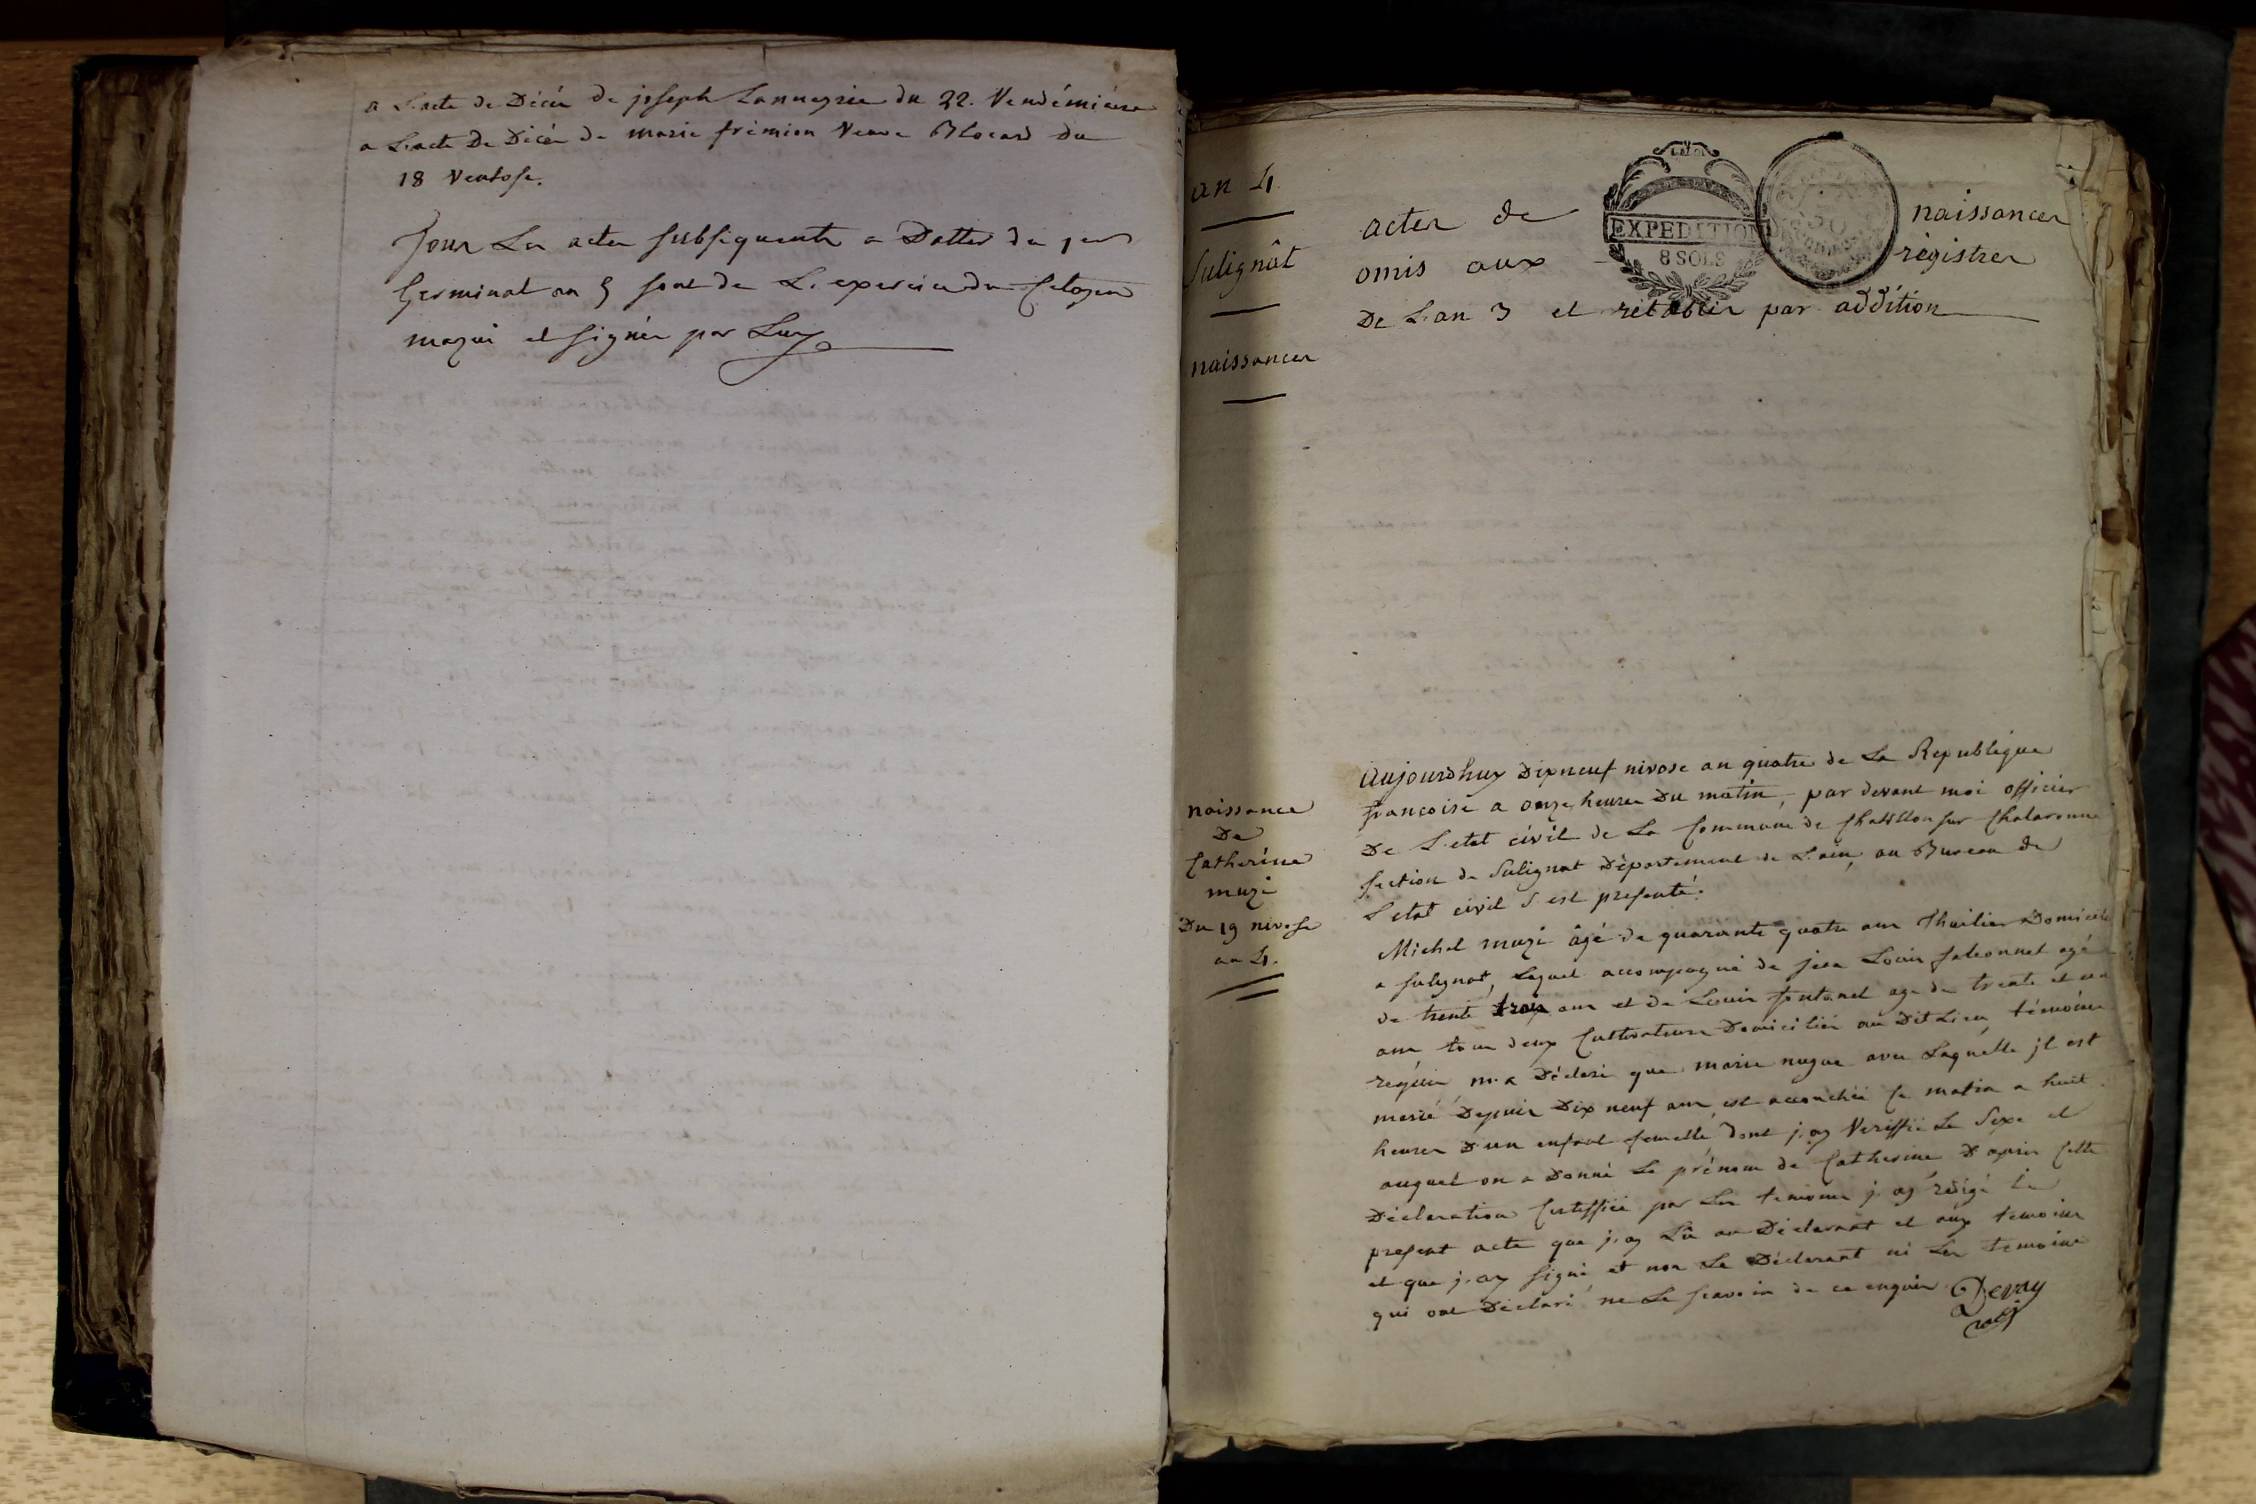 a L'acte de Décès de joseph Lanneyrie du 22. Vendémiaire
a L'acte De Décès de marie frémion Veuve Blocard du
18 Ventose.
Tous Les actes subsequents a Datter du 1er
Germinal an 5 sont de L'exercice du Citoyen
mazui et signés par Luy
an 4.
Sulignât
naissances
actes de naissances
EXPEDITION
8 SOLS
omis aux régistres
De L'an 3 et rétablis par addition
naissance
De
Catherine
muzi
Du 19 nivose
an 4.
Aujourdhuy Dixneuf nivose an quatre de La Republique
françoise a onze heures Du matin, par devant moi officier
De L'etat civil de La Commune de Chatillon sur Chalaronne
section de Sulignat Département de L'ain, au Bureau de
L'etat civil s'est presenté.
Michel muzi âgé de quarante quatre ans Thuilier Domicilié
a sulignat, Lequel accompagné de jean Louis falconnet agé
de trente trois ans et de Louis fontanel age de trente et un
ans tous deux Cultivateurs Domiciliés au Dit Lieu, témoins
requis m'a Déclaré que marie nugue avec Laquelle jl est
marié Depuis Dix neuf ans, est accouchée Ce matin a huit
heures D'un enfant femelle, dont j'ay Veriffié Le Sexe et
auquel on a Donné Le prénom de Catherine D'après Cette
Déclaration Certiffiée par Les temoins j'ay rédigé Le
present acte que j'ay Lû au Déclarant et aux temoins
et que j'ay signé et non Le Déclarant ni Les temoins
qui ont Déclaré ne Le scavoir de ce enquis Devay